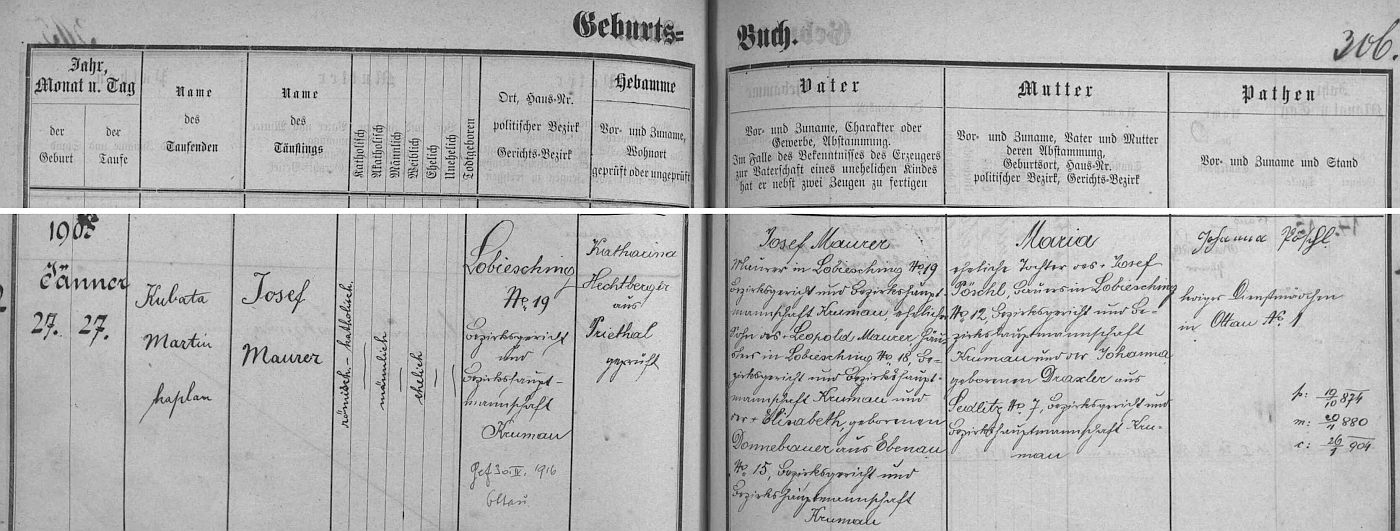 Geburts= Buch.
306.
Jahr,
Monat u. Tag
der
Geburt
der
Taufe
Name
des
Taufenden
Name
des
Täuflings
Katholisch
Akatholisch
Männlich
Weiblich
Ehelich
Unehelich
Todtgeboren
Ort, Haus-Nr.
politischer Bezirk
Gerichts-Bezirk
Hebamme
Vor- und Zuname,
Wohnort
geprüft oder ungeprüft
Vater
Vor- und Zuname, Charakter oder
Gewerbe, Abstammung.
Im Falle des Bekenntnisses des Erzeugers
zur Vaterschaft eines unehelichen Kindes
hat er nebst zwei Zeugen zu fertigen
Mutter
Vor- und Zuname, Vater und Mutter
deren Abstammung,
Geburtsort, Haus-Nr.
politischer Bezirk, Gerichts-Bezirk
Pathen
Vor- und Zuname und Stand
1905
Jänner
27. 27.
Kubata
Martin
kaplan
Josef
Maurer
römisch-katholisch
männlich
ehelich
Lobiesching
No 19
Bezirksgericht
und
Bezirkshaupt-
mannschaft
Krumau
30. IV. 1916
Ottau
Katharina
Hechtberger
aus
Priethal
geprüft
Josef Maurer
Maurer in Lobiesching No 19
Bezirksgericht und Bezirkshaupt-
mannschaft Krumau, ehelicher
Sohn des + Leopold Maurer, Häus-
lers in Lobiesching No 18, Be-
zirksgericht und Bezirkshaupt-
mannschaft Krumau und
der + Elisabeth, geborenen
Donnebauer aus Ebenau
No 15, Bezirksgericht und
Bezirkshauptmannschaft
Krumau
Maria
eheliche Tochter des + Josef
Pöschl, Bauers in Lobiesching
No 12, Bezirksgericht und Be-
zirkshauptmannschaft
Krumau und der Johanna
geborenen Draxler aus
Sedlitz No 7, Bezirksgericht und
Bezirkshauptmannschaft Kru-
mau
Johanna Pöschl
Dienstmädchen
in Ottau No 1
p: 19/10 874
m: 20/1 880
c: 26/1 904